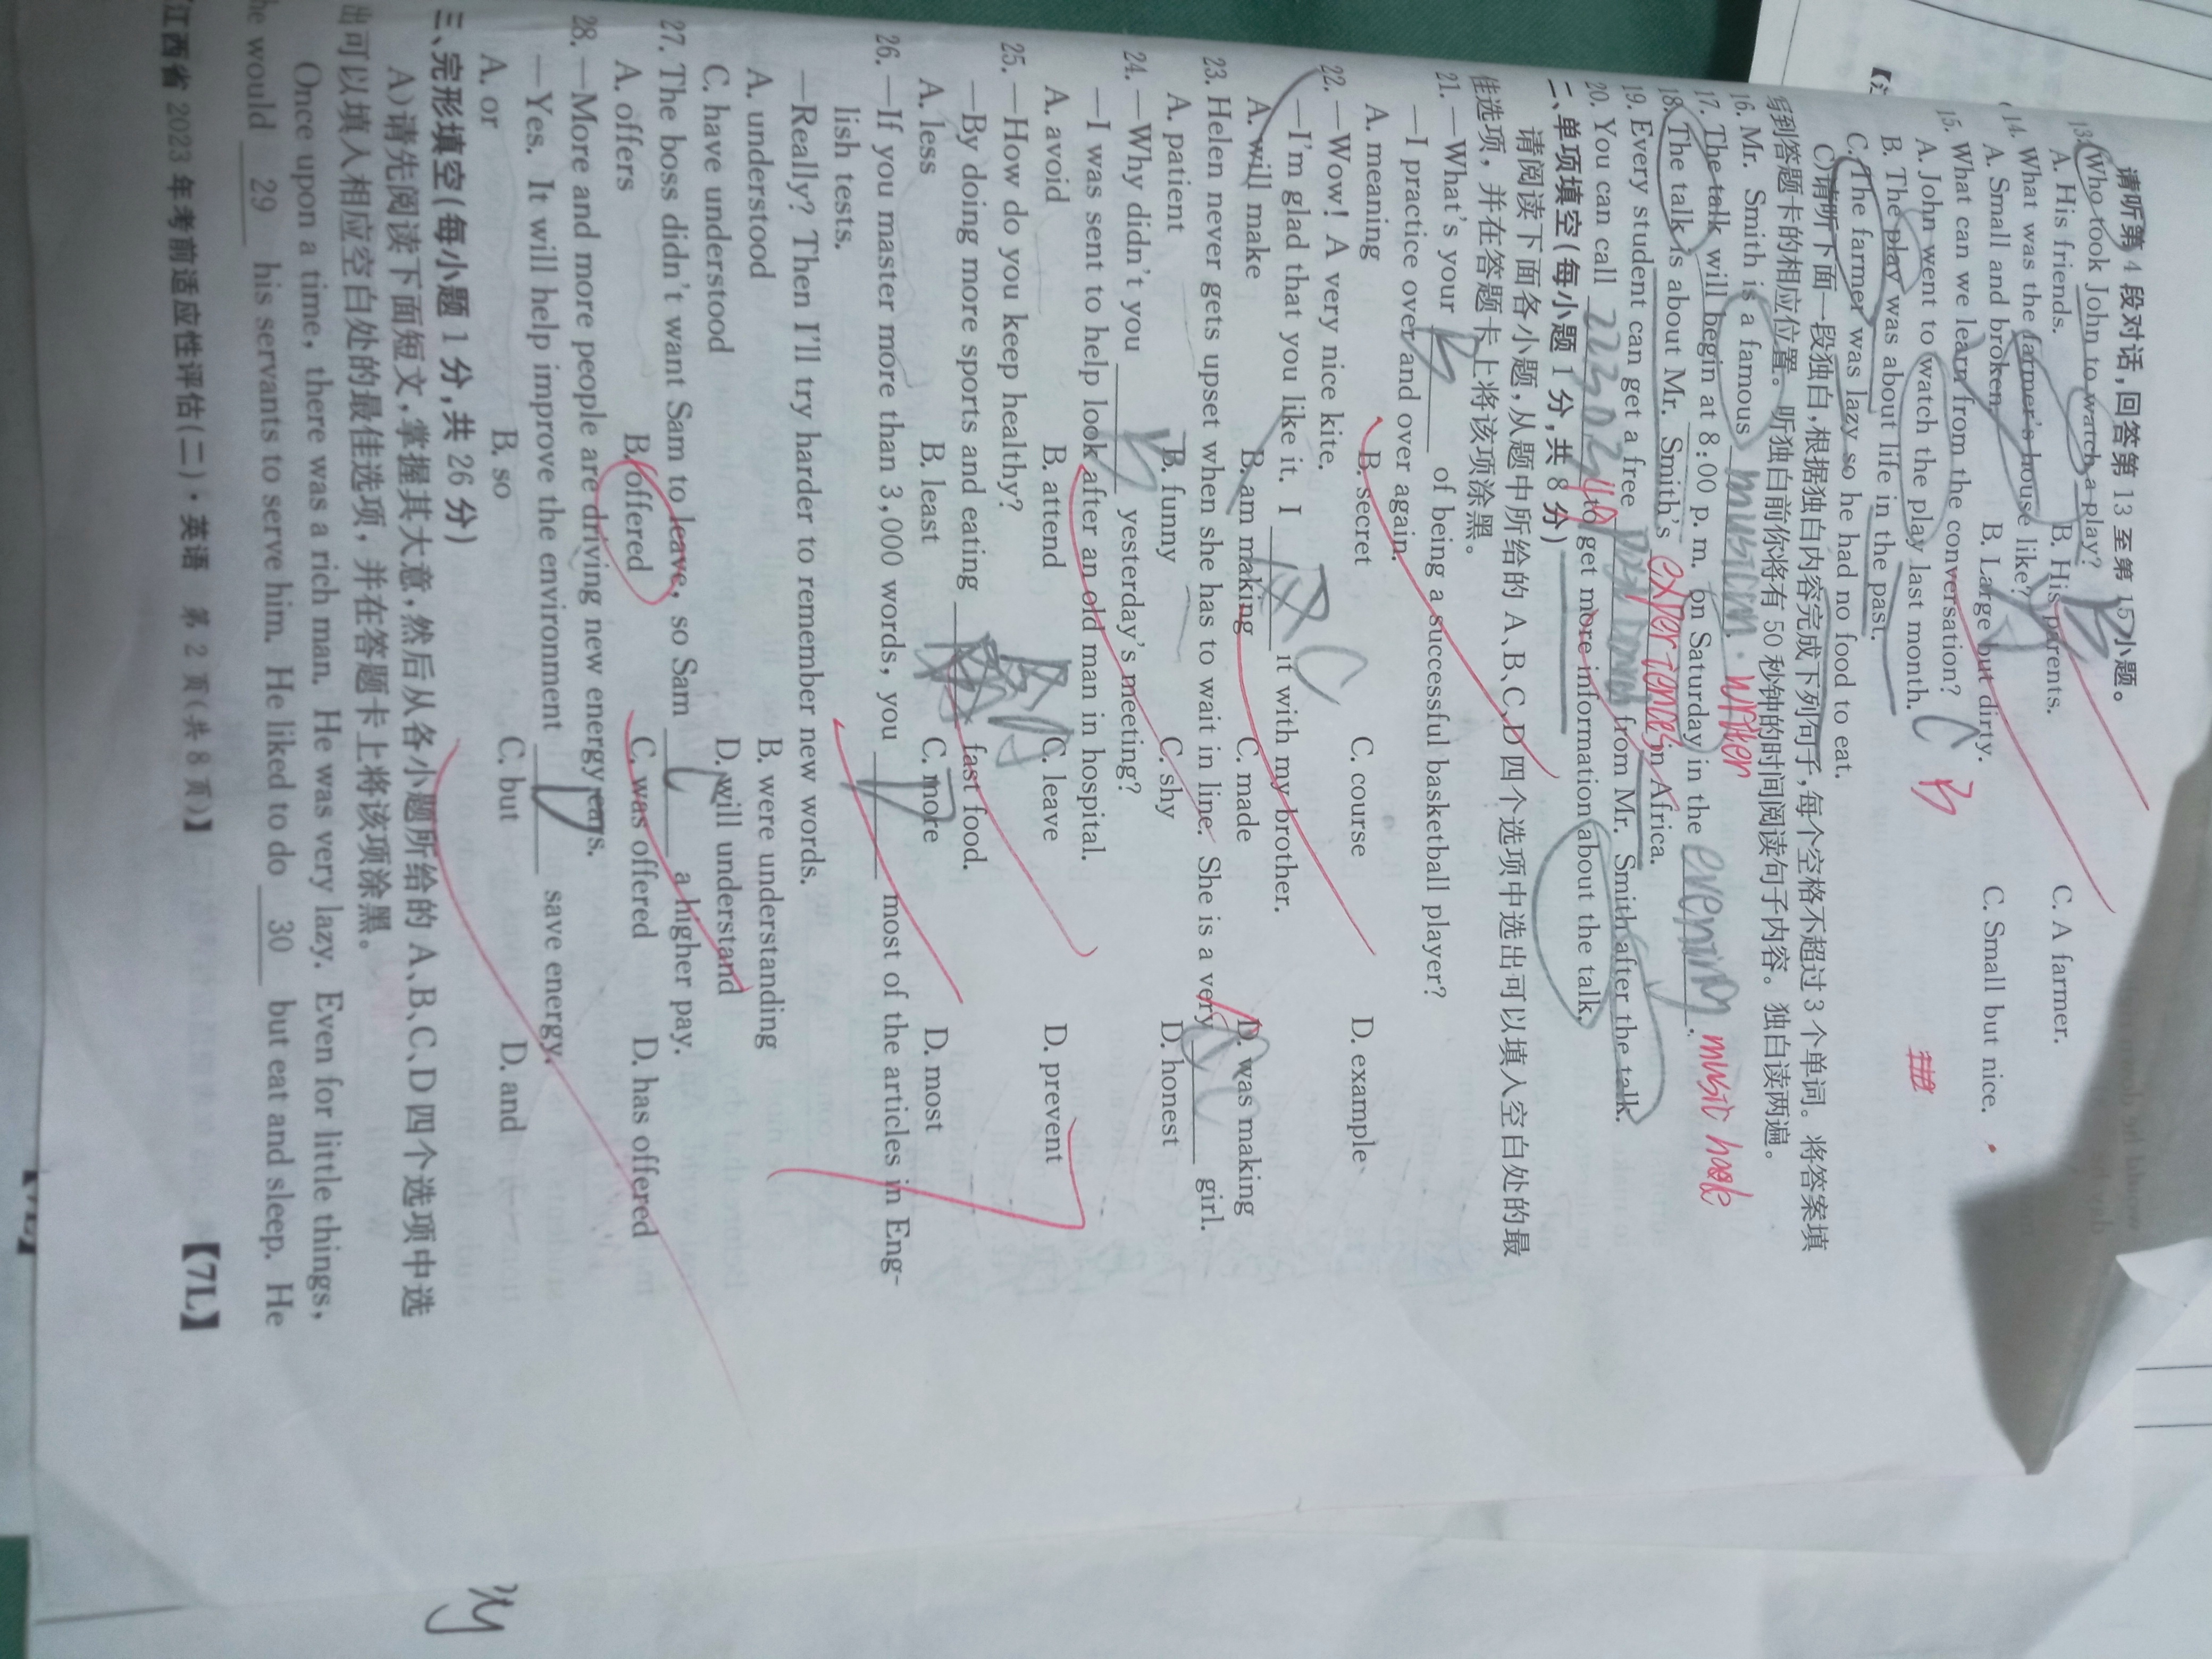 请听第 4 段对话,回答第 13 至第 15 小题。
13. Who took John to watch a play?
A. His friends. B. His parents. C. A farmer.
14. What was the farmer's house like?
A. Small and broken. B. Large but dirty. C. Small but nice.
15. What can we learn from the conversation? C B
A. John went to watch the play last month.
B. The play was about life in the past.
C. The farmer was lazy so he had no food to eat.
C)请听下面一段独白,根据独白内容完成下列句子,每个空格不超过 3 个单词。将答案填
写到答题卡的相应位置。听独白前你将有 50 秒钟的时间阅读句子内容。独白读两遍。
16. Mr. Smith is a famous writer
17. The talk will begin at 8:00 p. m. on Saturday in the evening. music
18. The talk is about Mr. Smith's in Africa.
19. Every student can get a free from Mr. Smith after the talk.
20. You can call 2230240 to get more information about the talk.
二、单项填空(每小题 1 分,共 8 分)
请阅读下面各小题,从题中所给的 A、B、C、D 四个选项中选出可以填入空白处的最
佳选项,并在答题卡上将该项涂黑。
21. —What's your B of being a successful basketball player?
—I practice over and over again.
A. meaning B. secret C. course D. example
22. —Wow! A very nice kite.
—I'm glad that you like it. I it with my brother. C
A. will make B. am making C. made D. was making
23. Helen never gets upset when she has to wait in line. She is a very girl.
A. patient B. funny C. shy D. honest
24. —Why didn't you B yesterday's meeting?
—I was sent to help look after an old man in hospital.
A. avoid B. attend C. leave D. prevent
25. —How do you keep healthy?
—By doing more sports and eating fast food. A
A. less B. least C. more D. most
26. —If you master more than 3,000 words, you D most of the articles in Eng-
lish tests.
—Really? Then I'll try harder to remember new words.
A. understood B. were understanding
C. have understood D. will understand
27. The boss didn't want Sam to leave, so Sam C a higher pay.
A. offers B. offered C. was offered D. has offered
28. —More and more people are driving new energy cars.
—Yes. It will help improve the environment D save energy.
A. or B. so C. but D. and
三、完形填空(每小题 1 分,共 26 分)
A)请先阅读下面短文,掌握其大意,然后从各小题所给的 A、B、C、D 四个选项中选
出可以填入相应空白处的最佳选项,并在答题卡上将该项涂黑。
Once upon a time, there was a rich man. He was very lazy. Even for little things,
he would 29 his servants to serve him. He liked to do 30 but eat and sleep. He
江西省 2023 年考前适应性评估(二)·英语 第 2 页(共 8 页)】 【7L】